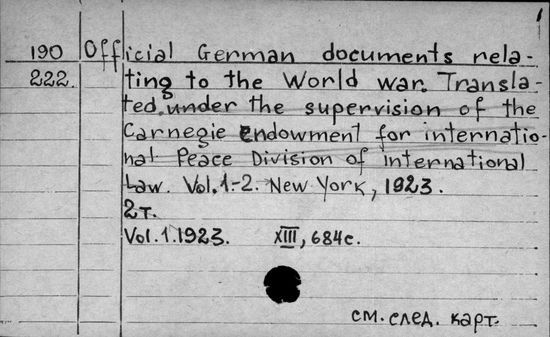 1
190 Official German documents rela-
222. ting to the World war. Transla-
ted under the supervision of the
Carnegie Endowment for internatio-
nal Peace Division of international
Law. Vol. 1-2. New York, 1923.
2т.
Vol. 1. 1923. XIII, 684с.
см. след. карт.